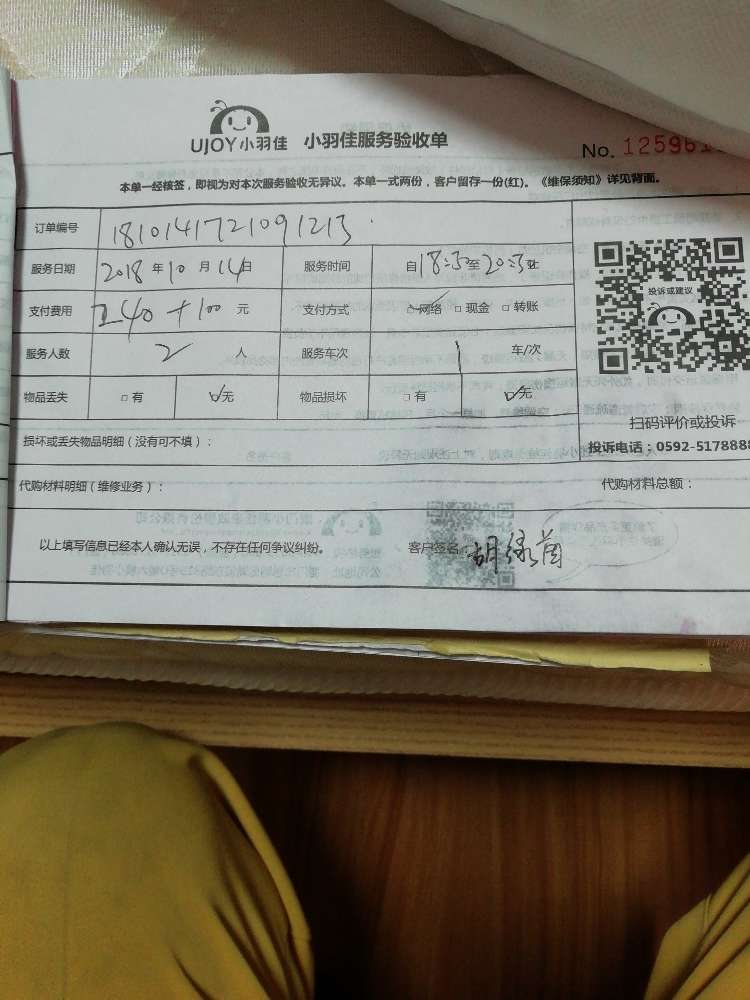 UJOY小羽佳 小羽佳服务验收单
No. 12596
本单一经核签，即视为对本次服务验收无异议。本单一式两份，客户留存一份(红)。《维保须知》详见背面。
订单编号 1810141721091213
服务日期 2018年10月14日 服务时间 自18:30至20:30止
支付费用 240+100元 支付方式 网络 现金 转账
投诉或建议
服务人数 2人 服务车次 1车/次
物品丢失 有 无 物品损坏 有 无
扫码评价或投诉
损坏或丢失物品明细（没有可不填）：
投诉电话：0592-5178888
代购材料明细（维修业务）： 代购材料总额：
以上填写信息已经本人确认无误，不存在任何争议纠纷。 客户签名：胡绿茵